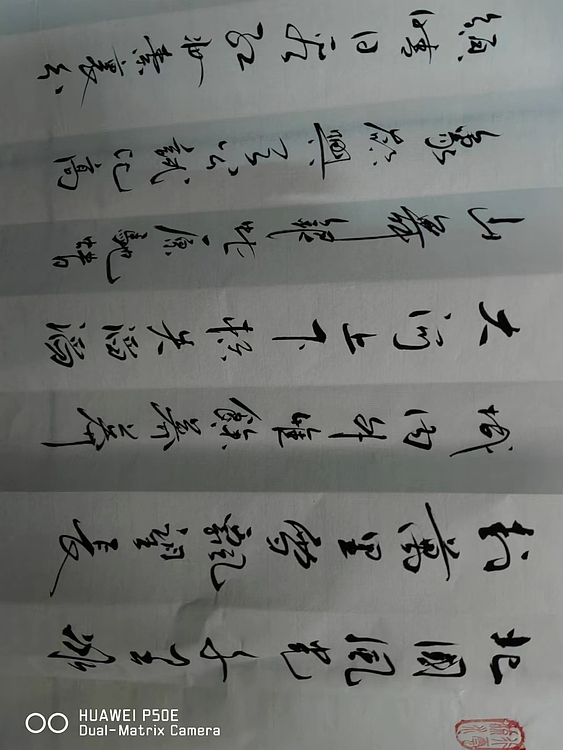 北國風光千里冰
封萬里雪飄望長
城内外惟餘莽莽
大河上下頓失滔滔
山舞銀蛇原馳蜡
象欲與天公試比高
須晴日看紅妝素裹分
HUAWEI P50E
Dual-Matrix Camera